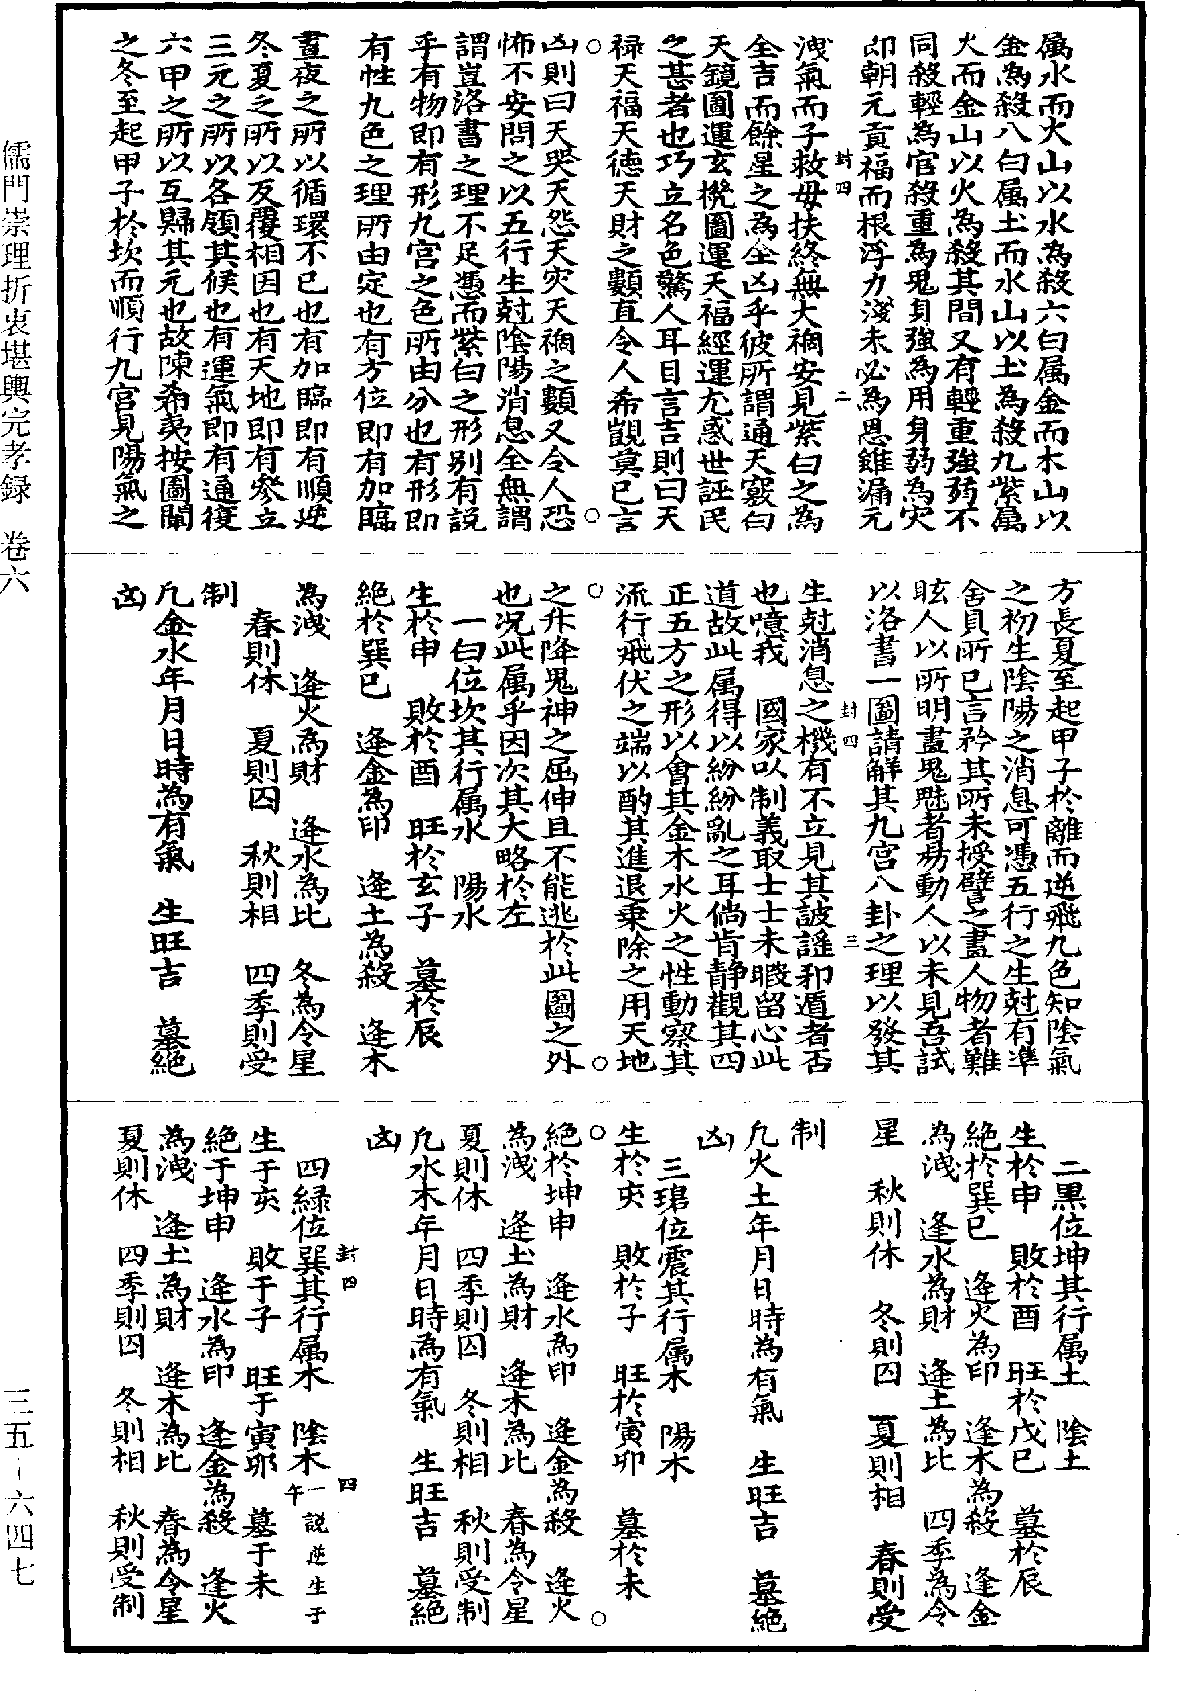 属水而火山以水為殺六白属金而木山以
金為殺八白属土而水山以土為殺九紫属
火而金山以火為殺其間又有輕重強弱不
同殺輕為官殺重為鬼身強為用身弱為灾
即朝元貢福而根浮力淺未必為恩雖漏元
封四
二
洩氣而子救母扶終無大禍安見紫白之為
全吉而餘星之為全凶乎彼所謂通天竅白
天鏡圖運玄欖圖運天福經運尤惑世誣民
之甚者也巧立名色驚人耳目言吉則曰天
禄天福天徳天財之類直令人希覬莫已言
凶則曰天哭天怨天灾天禍之類又令人恐
怖不安問之以五行生尅陰陽消息全無謂
謂豈洛書之理不足憑而紫白之形别有説
乎有物即有形九宫之色所由分也有形即
有性九色之理所由定也有方位即有加臨
晝夜之所以循環不已也有加臨即有順逆
冬夏之所以反覆相因也有天地即有參立
三元之所以各領其候也有運氣即有通復
六甲之所以互歸其元也故陳希夷按圖闡
之冬至起甲子於坎而順行九宫見陽氣之
方長夏至起甲子於離而逆飛九色知陰氣
之初生陰陽之消息可憑五行之生尅有準
舍員所已言矜其所未授譬之畫人物者難
眩人以所明畫鬼魅者易動人以未見吾試
以洛書一圖請解其九宫八卦之理以發其
封四
三
生尅消息之機有不立見其詖謡和遁者否
也噫我　國家以制義取士士未暇留心此
道故此属得以紛紛亂之耳倘肯静觀其四
正五方之形以會其金木水火之性動察其
流行飛伏之端以酌其進退乗除之用天地
之升降鬼神之屈伸且不能逃於此圖之外
也况此属乎因次其大略於左
一白位坎其行属水　陽水
生於申　敗於酉　旺於玄子　墓於辰
絶於巽巳　逢金為印　逢土為殺　逢木
為洩　逢火為財　逢水為比　冬為令星
春則休　夏則囚　秋則相　四季則受
制
凡金水年月日時為有氣　生旺吉　墓絶
凶
二黒位坤其行属土　陰土
生於申　敗於酉　旺於戊巳　墓於辰
絶於巽巳　逢火為印　逢木為殺　逢金
為洩　逢水為財　逢土為比　四季為令
星　秋則休　冬則囚　夏則相　春則受
制
凡火土年月日時為有氣　生旺吉　墓絶
凶
三瑻位震其行属木　陽木
生於亥　敗於子　旺於寅卯　墓於未
絶於坤申　逢水為印　逢金為殺　逢火
為洩　逢土為財　逢木為比　春為令星
夏則休　四季則囚　冬則相　秋則受制
凡水木年月日時為有氣　生旺吉　墓絶
凶
封四
四
四緑位巽其行属木　陰木一説逆生于午
生于亥　敗于子　旺于寅卯　墓于未
絶于坤申　逢水為印　逢金為殺　逢火
為洩　逢土為財　逢木為比　春為令星
夏則休　四季則囚　冬則相　秋則受制
儒門崇理折衷堪輿完孝録　卷六
三五—六四七